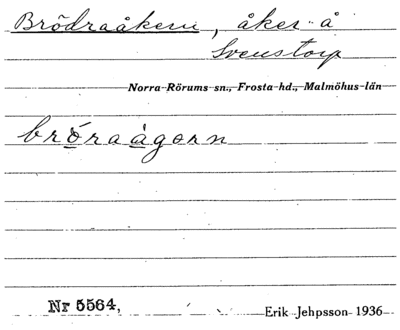 Brödraåkern, åker å
Svenstorp
Norra Rörums sn., Frosta hd., Malmöhus län
bróraågorn
Nr 5564,
Erik Jehpsson 1936